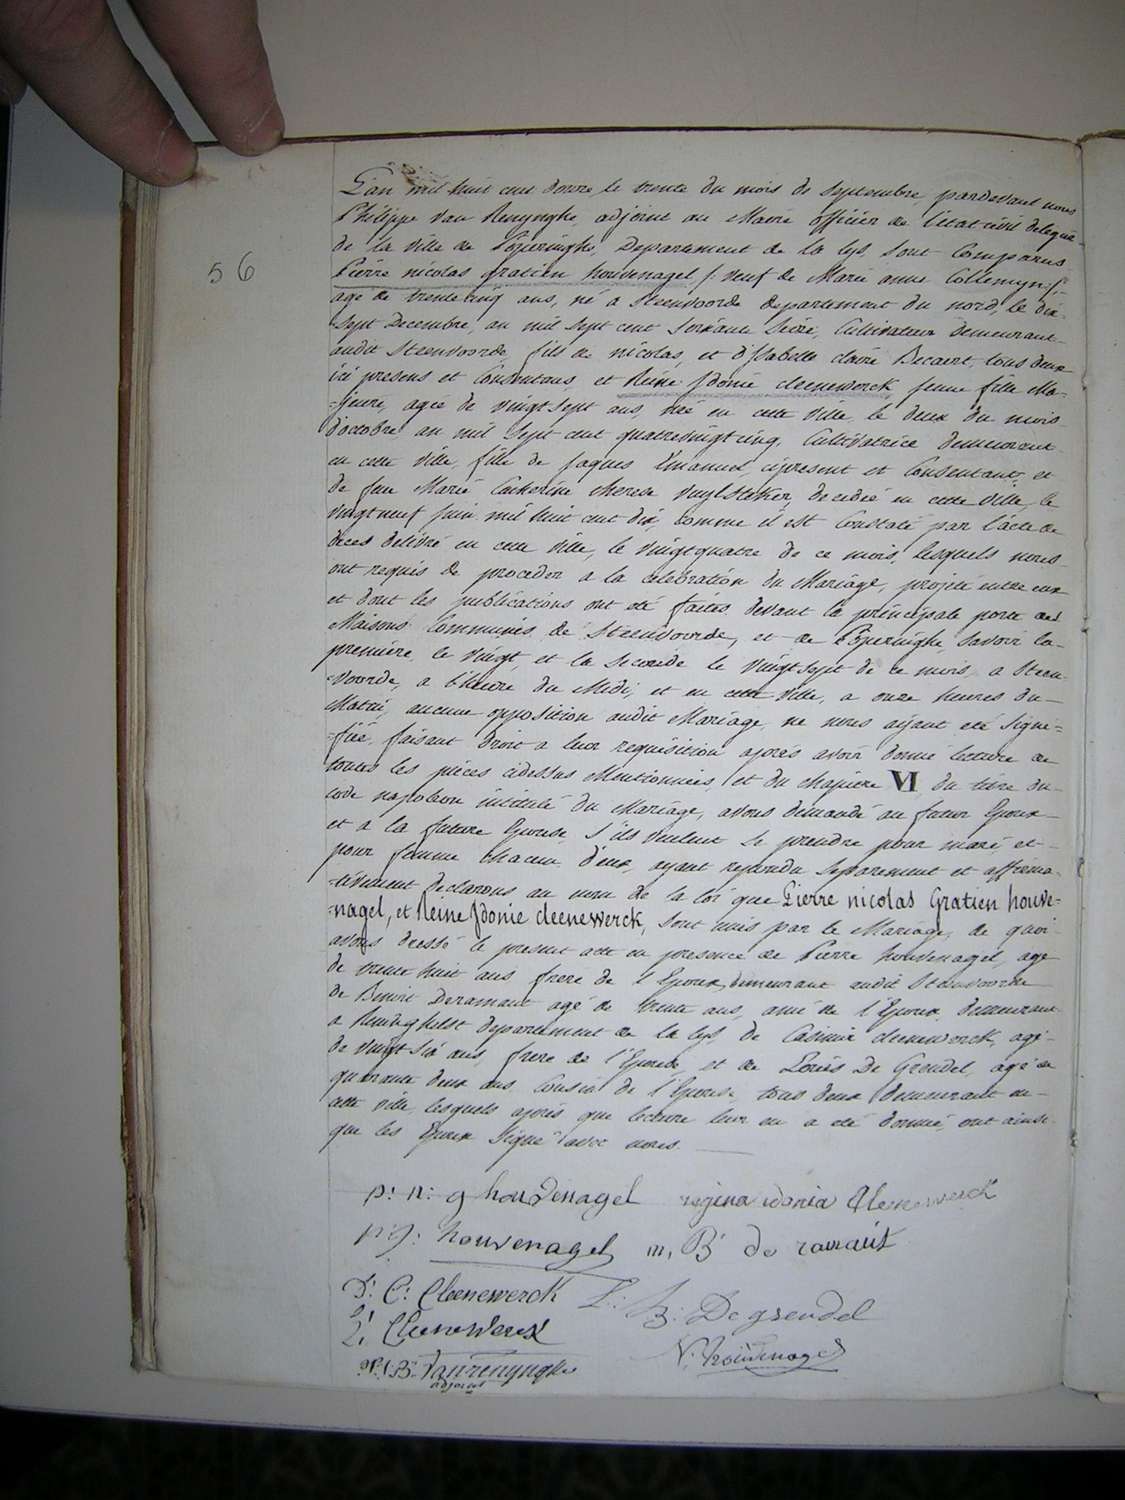 56
L'an mil huit cent douze, le trente du mois de Septembre, pardevant nous
Philippe van Renynghe, adjoint au Maire officier de l'état civil delegué
de la ville de Poperinghe, Departement de la Lys, sont Comparus
Pierre nicolas gratien houvenagel /: veuf de Marie anne Collemyn :/
agé de trente cinq ans, né a Steenvoorde departement du nord, le dix-
-sept Decembre, an mil sept cent soixante seize, Cultivateur demeurant
audit Steenvoorde, fils de nicolas, et d'Isabelle claire Becaert, tous deux
ici presens et Consentans, et Reine Idonie cleenewerck jeune fille Ma-
-jeure, agée de vingt sept ans, née en cette ville le deux du mois
d'octobre an mil sept cent quatrevingt cinq, Cultivatrice demeurant
en cette ville, fille de Jaques Emanuel cipresent et Consentant, et
de feu Marie Catherine therese vuylsteker, decedée en cette ville, le
vingtneuf juin mil huit cent dix, comme il est Constaté par l'acte de
deces delivré en cette ville, le vingtquatre de ce mois, lesquels nous
ont requis de proceder a la celebration du Mariage, projeté entre eux
et dont les publications ont été faites devant la principale porte des
Maisons Communes de Steenvoorde, et de Poperinghe, savoir la
premiere, le vingt, et la seconde le vingt sept de ce mois, a Steen-
-voorde, a l'heure du Midi, et en cette ville, a onze heures du
Matin, aucune opposition audit Mariage ne nous aijant été signi-
-fiée, faisant droit a leur requisition aprés avoir donné lecture de
toutes les piéces cidessus Mentionnées, et du chapitre VI, du titre du
code napoleon intitulé du Mariage, avons demandé au futur Epoux
et a la future Epouse, s'ils veulent se prendre pour mari, et
pour femme chacun d'eux, ayant repondu separement et affirma-
-tivement declarons au nom de la loi que Pierre nicolas Gratien houve-
-nagel, et Reine Idonie cleenewerck, sont unis par le Mariage, de quoi
avons dressé le present acte en presence de Pierre houvenagel, agé
de trente huit ans frere de l'Epoux, demeurant audit Steenvoorde
de Benoit Deramaut agé de trente ans, ami de l'Epoux, demeurant
a Reninghelst departement de la Lys, de Casimir cleenewerck, agé
de vingt six ans, frere de l'Epouse, et de Louis De Grendel, agé de
quarante deux ans Cousin de l'Epouse, tous deux demeurant en
cette ville, lesquels aprés que lecture leur en a été donné, ont ainsi
que les Epoux signé avec nous.
p: n: g houvenagel regina idonia Cleenewerck
p: j: houvenagel m, B de ramaut
D: C: Cleenewerck L: B: De grendel
Cleenewerck
N: houvenagel
P: J: B: Vanrenynghe
adjoint